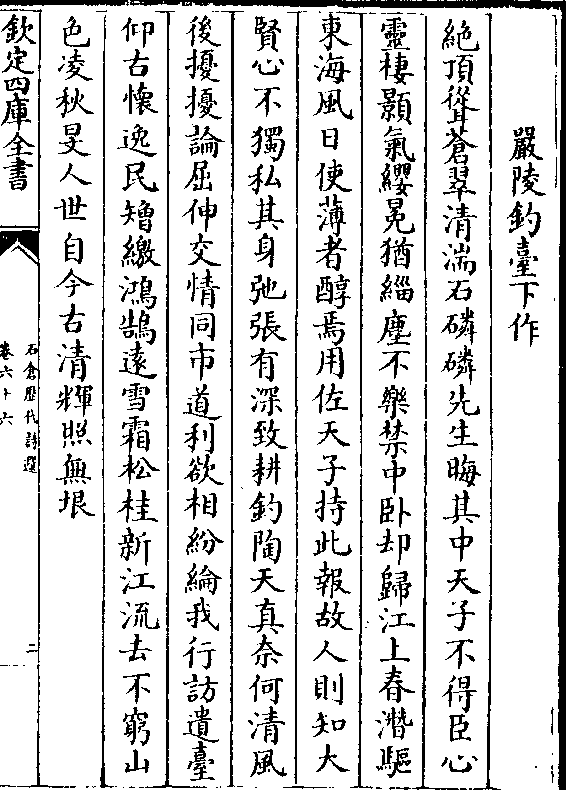 嚴陵釣臺下作
絶頂聳蒼翠清湍石磷磷先生晦其中天子不得臣心
靈棲顥氣纓冕猶緇塵不樂禁中卧却歸江上春潛驅
東海風日使薄者醇焉用佐天子持此報故人則知大
賢心不獨私其身弛張有深致耕釣陶天真奈何清風
後擾擾論屈伸交情同市道利欲相紛綸我行訪遺臺
仰古懷逸民矰繳鴻鵠遠雪霜松桂新江流去不窮山
色凌秋旻人世自今古清輝照無垠
欽定四庫全書
石倉歷代詩選
卷六十六
二